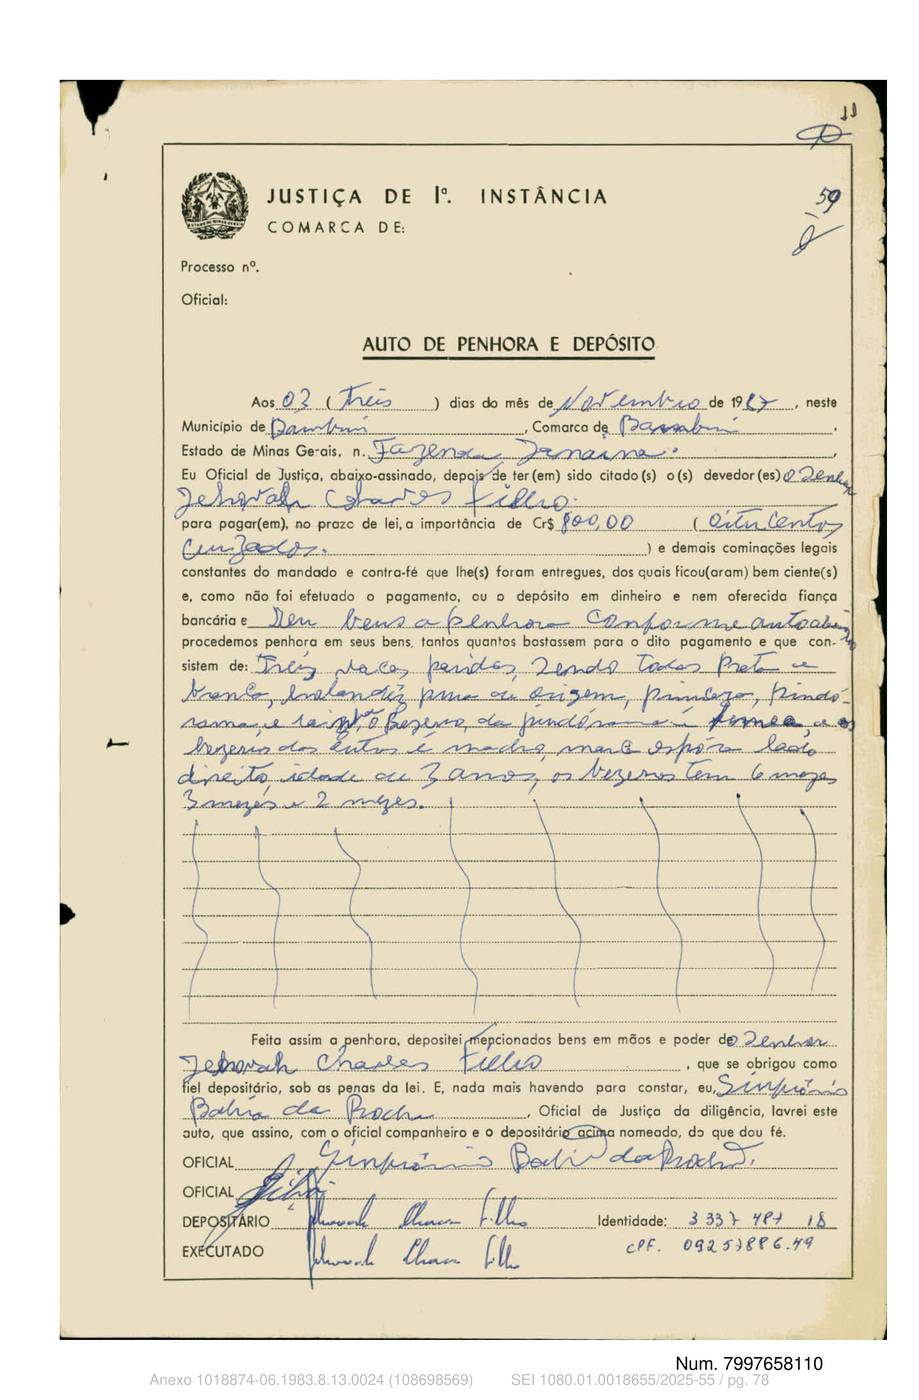 11
59
JUSTIÇA DE 1ª. INSTÂNCIA
COMARCA DE:
Processo nº.
Oficial:
AUTO DE PENHORA E DEPÓSITO
Aos 03 ( Treis ) dias do mês de Novembro de 1987, neste
Município de Bambui, Comarca de Bambui,
Estado de Minas Gerais, n. Fazenda Janaina.
Eu Oficial de Justiça, abaixo-assinado, depois de ter(em) sido citado(s) o(s) devedor(es) o Senhor
Jehovah Chaves Filho.
para pagar(em), no prazo de lei, a importância de Cr$ 800,00 ( Oitucentos
Cruzados. ) e demais cominações legais
constantes do mandado e contra-fé que lhe(s) foram entregues, dos quais ficou(aram) bem ciente(s)
e, como não foi efetuado o pagamento, ou o depósito em dinheiro e nem oferecida fiança
bancária e Deu bens a penhora Conforme auto
procedemos penhora em seus bens, tantos quantos bastassem para o dito pagamento e que con-
sistem de: Treis vacas paridas, sendo todas Preta e
branca, pura de origem, princeza, pindó-
rama, e o Bezerro da pindórama é femea, e os
bezerros dos outros é macho, marca espóra lado
direito, idade de 3 anos, os bezerros tem 6 mezes
3 mezes e 2 mezes.
Feita assim a penhora, depositei mencionados bens em mãos e poder do Senhor
Jehovah Chaves Filho, que se obrigou como
fiel depositário, sob as penas da lei. E, nada mais havendo para constar, eu, Sinprónio
Bahia da Rocha, Oficial de Justiça da diligência, lavrei este
auto, que assino, com o oficial companheiro e o depositário acima nomeado, do que dou fé.
OFICIAL Sinprónio Bahia da Rocha.
OFICIAL
DEPOSITÁRIO Jehovah Chaves Filho Identidade: 3 337 487
EXECUTADO Jehovah Chaves Filho CPF. 09257886.49
Num. 7997658110
Anexo 1018874-06.1983.8.13.0024 (108698569) SEI 1080.01.0018655/2025-55 / pg. 78